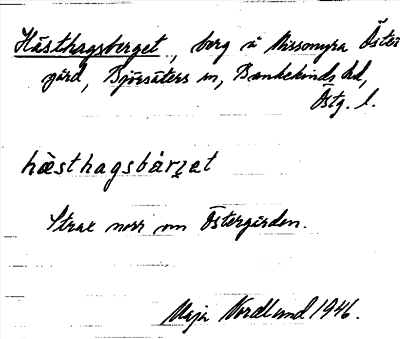 Hästhagsberget, berg å Missmyra Öster
gård, Björsäters sn, Bankekinds hd,
Östg. l.
hæsthagsbàrɉət
Strax norr om Östergården.
Maja Nordlund 1946.